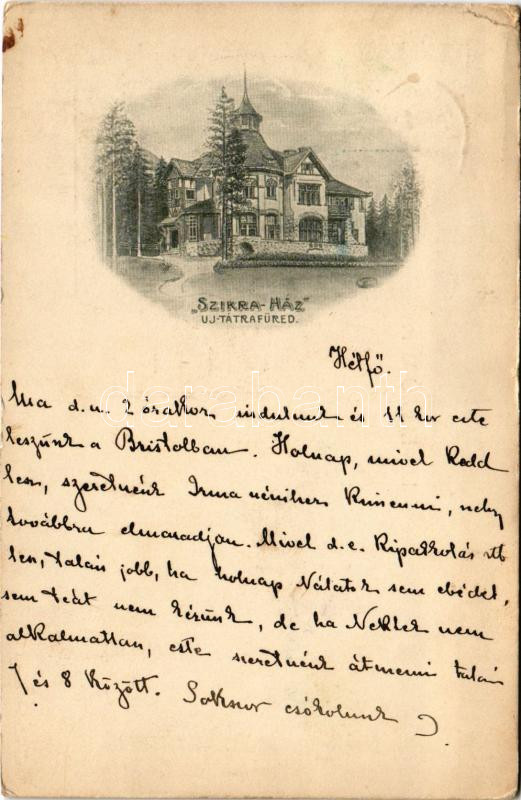 „SZIKRA-HÁZ”
UJ-TÁTRAFÜRED.
Hétfő.
Ma d. u. 2 órakor indulunk és 11 kor este
leszünk a Bristolban. Holnap, mivel Kedd
lesz, szeretnénk Irma nénihez kimenni, nehogy
továbbra elmaradjon. Mivel d. e. Kipakkolás stb
lesz, talán jobb, ha holnap Nálatok sem ebédet,
sem teát nem kérünk, de ha Nektek nem
alkalmatlan, este szeretnénk átmenni talán
7 és 8 között. Sokszor csókolunk
darabanth